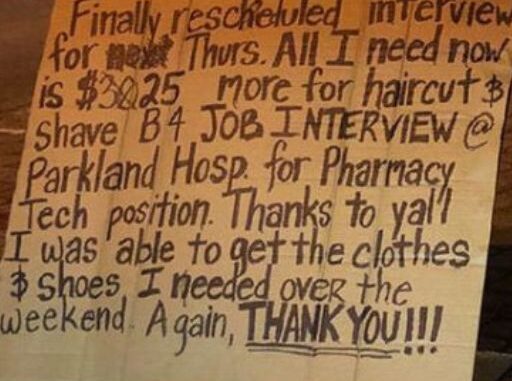 Finally rescheluled interview
for next Thurs. All I need now
is $30 25 more for haircut &
shave B4 JOB INTERVIEW @
Parkland Hosp. for Pharmacy
Tech position. Thanks to yall
I was able to get the clothes
& shoes I needed over the
weekend. Again, THANK YOU!!!